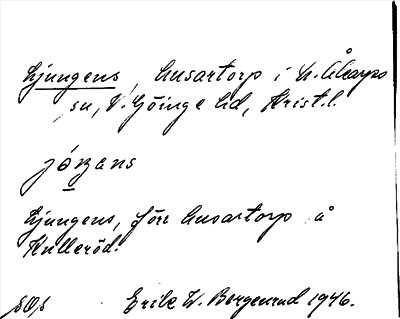 Ljungens, husartorp i N. Åkarps
sn, V. Göinge hd, Krist.l.
jöŋans
Ljungens, förr husartorp å
Hulleröd.
Erik W. Bergenrud 1946.